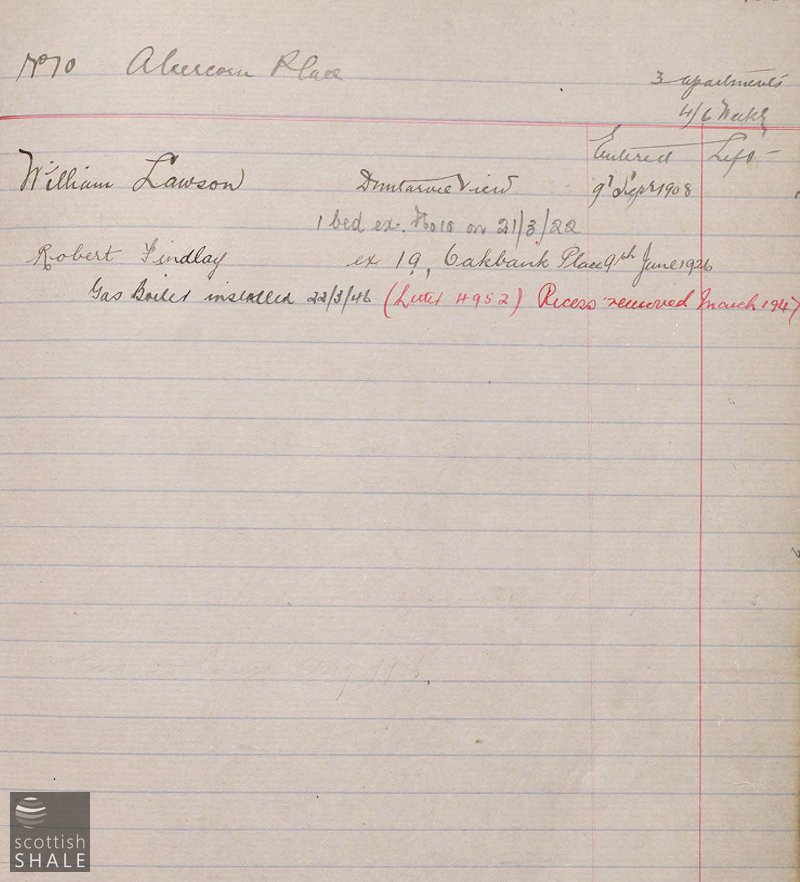 No 10 Abercorn Place
3 apartments
4/6 Weekly
Entered Left
William Lawson Duntarvie View 9th Sept 1908
1 bed ex. No 10 on 21/3/22
Robert Findlay ex 19, Oakbank Place 9th June 1926
Gas Boiler installed 22/3/46 (Letter 4952) Recess removed March 1947
scottish
SHALE